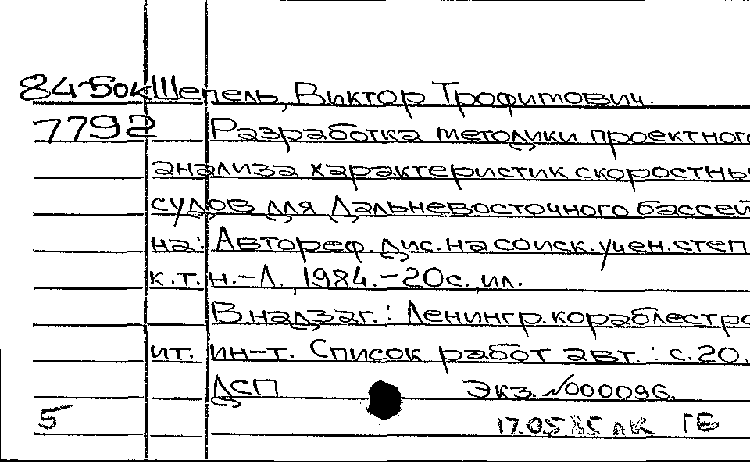 84-5ок Шепель, Виктор Трофимович.
7792 Разработка методики проектного
анализа характеристик скоростны
судов для Дальневосточного бассей
на: Автореф. дис. на соиск. учен. степ.
к.т.н. - Л., 1984. - 20с., ил.
В надзаг.: Ленингр. кораблестро
ит. ин-т. Список работ авт.: с. 20.
ДСП Экз. №000096
5 17.05.85 ЛК ГБ